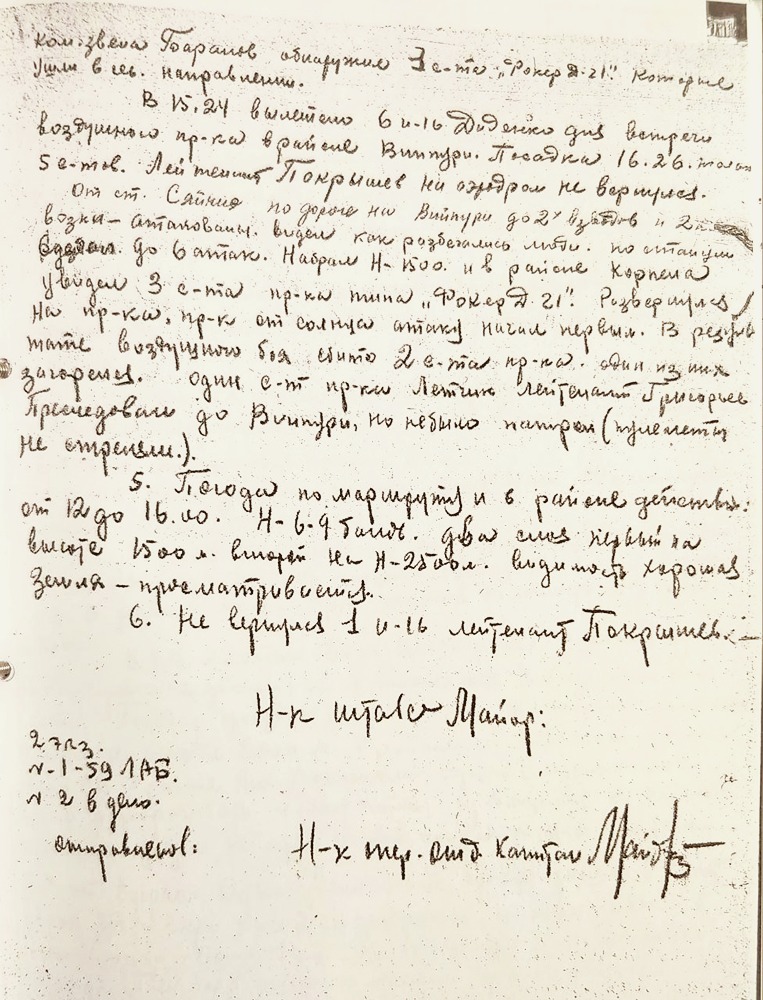 ком. звена Баранов обнаружил 3 с-та "Фокер Д-21". которые
ушли в сев. направлении.
В 15.24 вылетело 6 и-16 Диденко для встречи
воздушного пр-ка в районе Виипури. Посадка 16.26.
5 с-тов. Лейтенант Покрышев на аэродром не вернулся.
От ст. Сяйние по дороге на Виипури до 2х взводов и 2
возки - атакованы. видел как разбегались люди. по станции
до 6 атак. Набрал Н-1500. и в районе Корпела
увидел 3 с-та пр-ка типа "Фокер Д. 21". Развернулся
на пр-ка, пр-к от солнца атаку начал первым. В резуль
тате воздушного боя сбито 2 с-та пр-ка. один из них
загорелся. один с-т пр-ка летчик лейтенант Григорьев
Преследовал до Виипури, но небыло патрон (пулеметы
не стреляли.).
5. Погода по маршруту и в районе действ.:
от 12 до 16.00. Н-6-9 балов. два слоя первый на
высоте 1500 м. второй на Н-2500м. видимость хорошая
Земля - просматривается.
6. Не вернулся 1 и-16 лейтенант Покрышев. -
Н-к штаба Майор:
2 экз.
№-1-59 ЛАБ.
№ 2 в дело.
отправлено:
Н-к опер. отд. Капитан